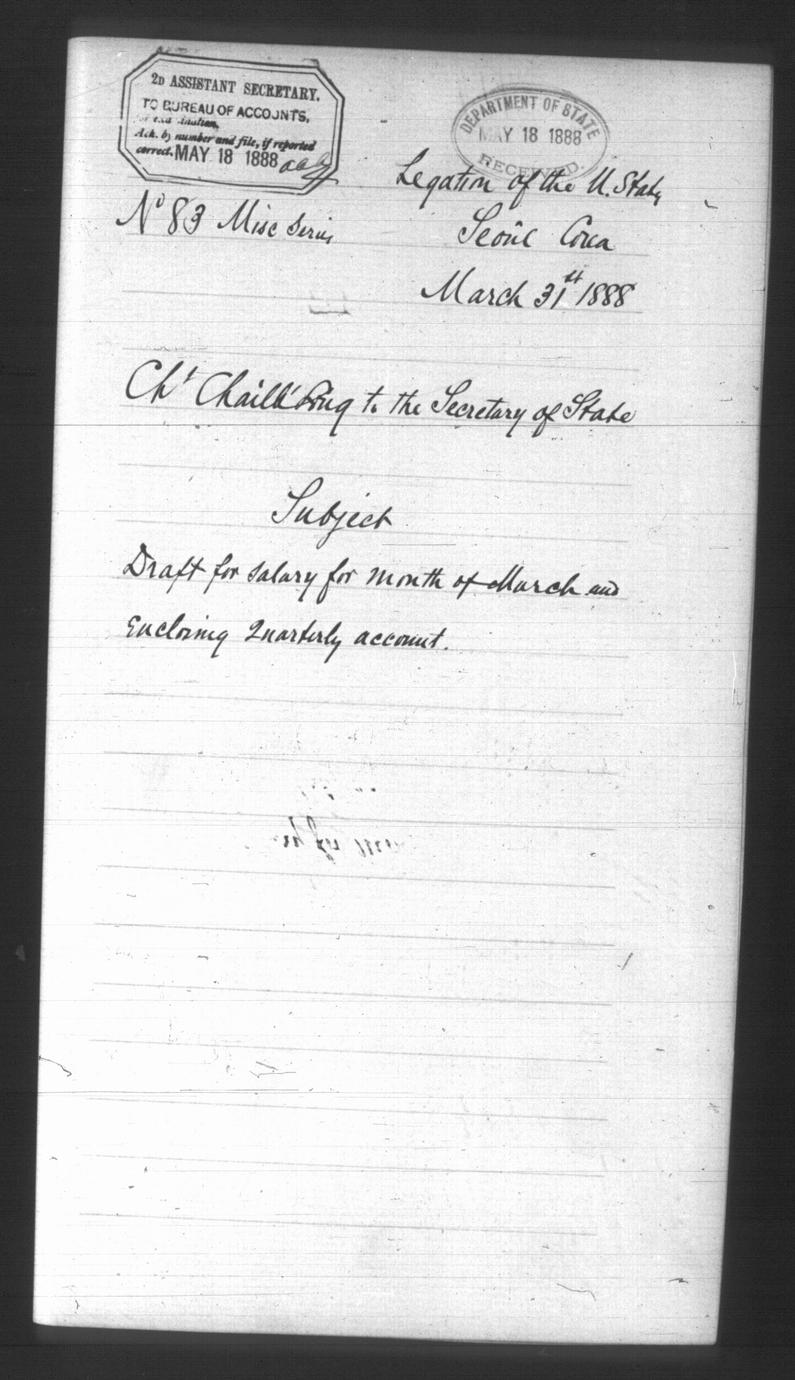 2D ASSISTANT SECRETARY.
TO BUREAU OF ACCOUNTS,
Ack. by number and file, if reported
correct. MAY 18 1888
DEPARTMENT OF STATE
MAY 18 1888
RECEIVED.
Legation of the U. States
No 83 Misc Series
Seoul Corea
March 31st 1888
Cht Chaillé Long to the Secretary of State
Subject
Draft for salary for month of March and
Enclosing Quarterly account.